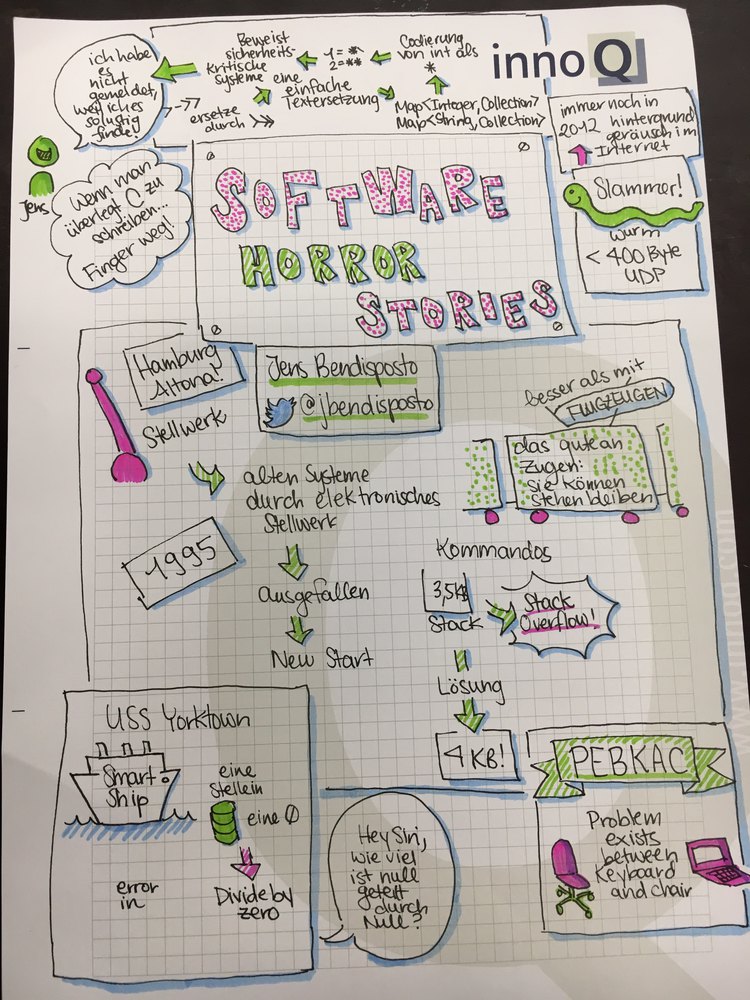 ich habe
es
nicht
gemeldet,
weil ich es
so lustig
finde!
Jens
Beweist
sicherheits-
kritische
Systeme eine
einfache
Textersetzung
1 = *
2 = **
Codierung
von int als
*
Map<Integer, Collection>
Map<String, Collection>
->>
ersetze
durch >>>
innoQ
immer noch in
2012 hintergrund
geräusch im
Internet
Slammer!
Wurm
< 400 Byte
UDP
Wenn man
überlegt C zu
schreiben...
Finger weg!
SOFTWARE
HORROR
STORIES
Jens Bendisposto
@jbendisposto
Hamburg
Altona!
Stellwerk
alten Systeme
durch elektronisches
Stellwerk
1995
ausgefallen
New Start
besser als mit
FLUGZEUGEN
das gute an
Zügen:
sie können
stehen bleiben
Kommandos
Stack
Stack
Overflow!
Lösung
4 KB!
USS Yorktown
Smart
Ship
eine
Stelle in
eine 0
Divide by
zero
error
in
Hey Siri,
wie viel
ist null
geteilt
durch
Null?
PEBKAC
Problem
exists
between
Keyboard
and chair